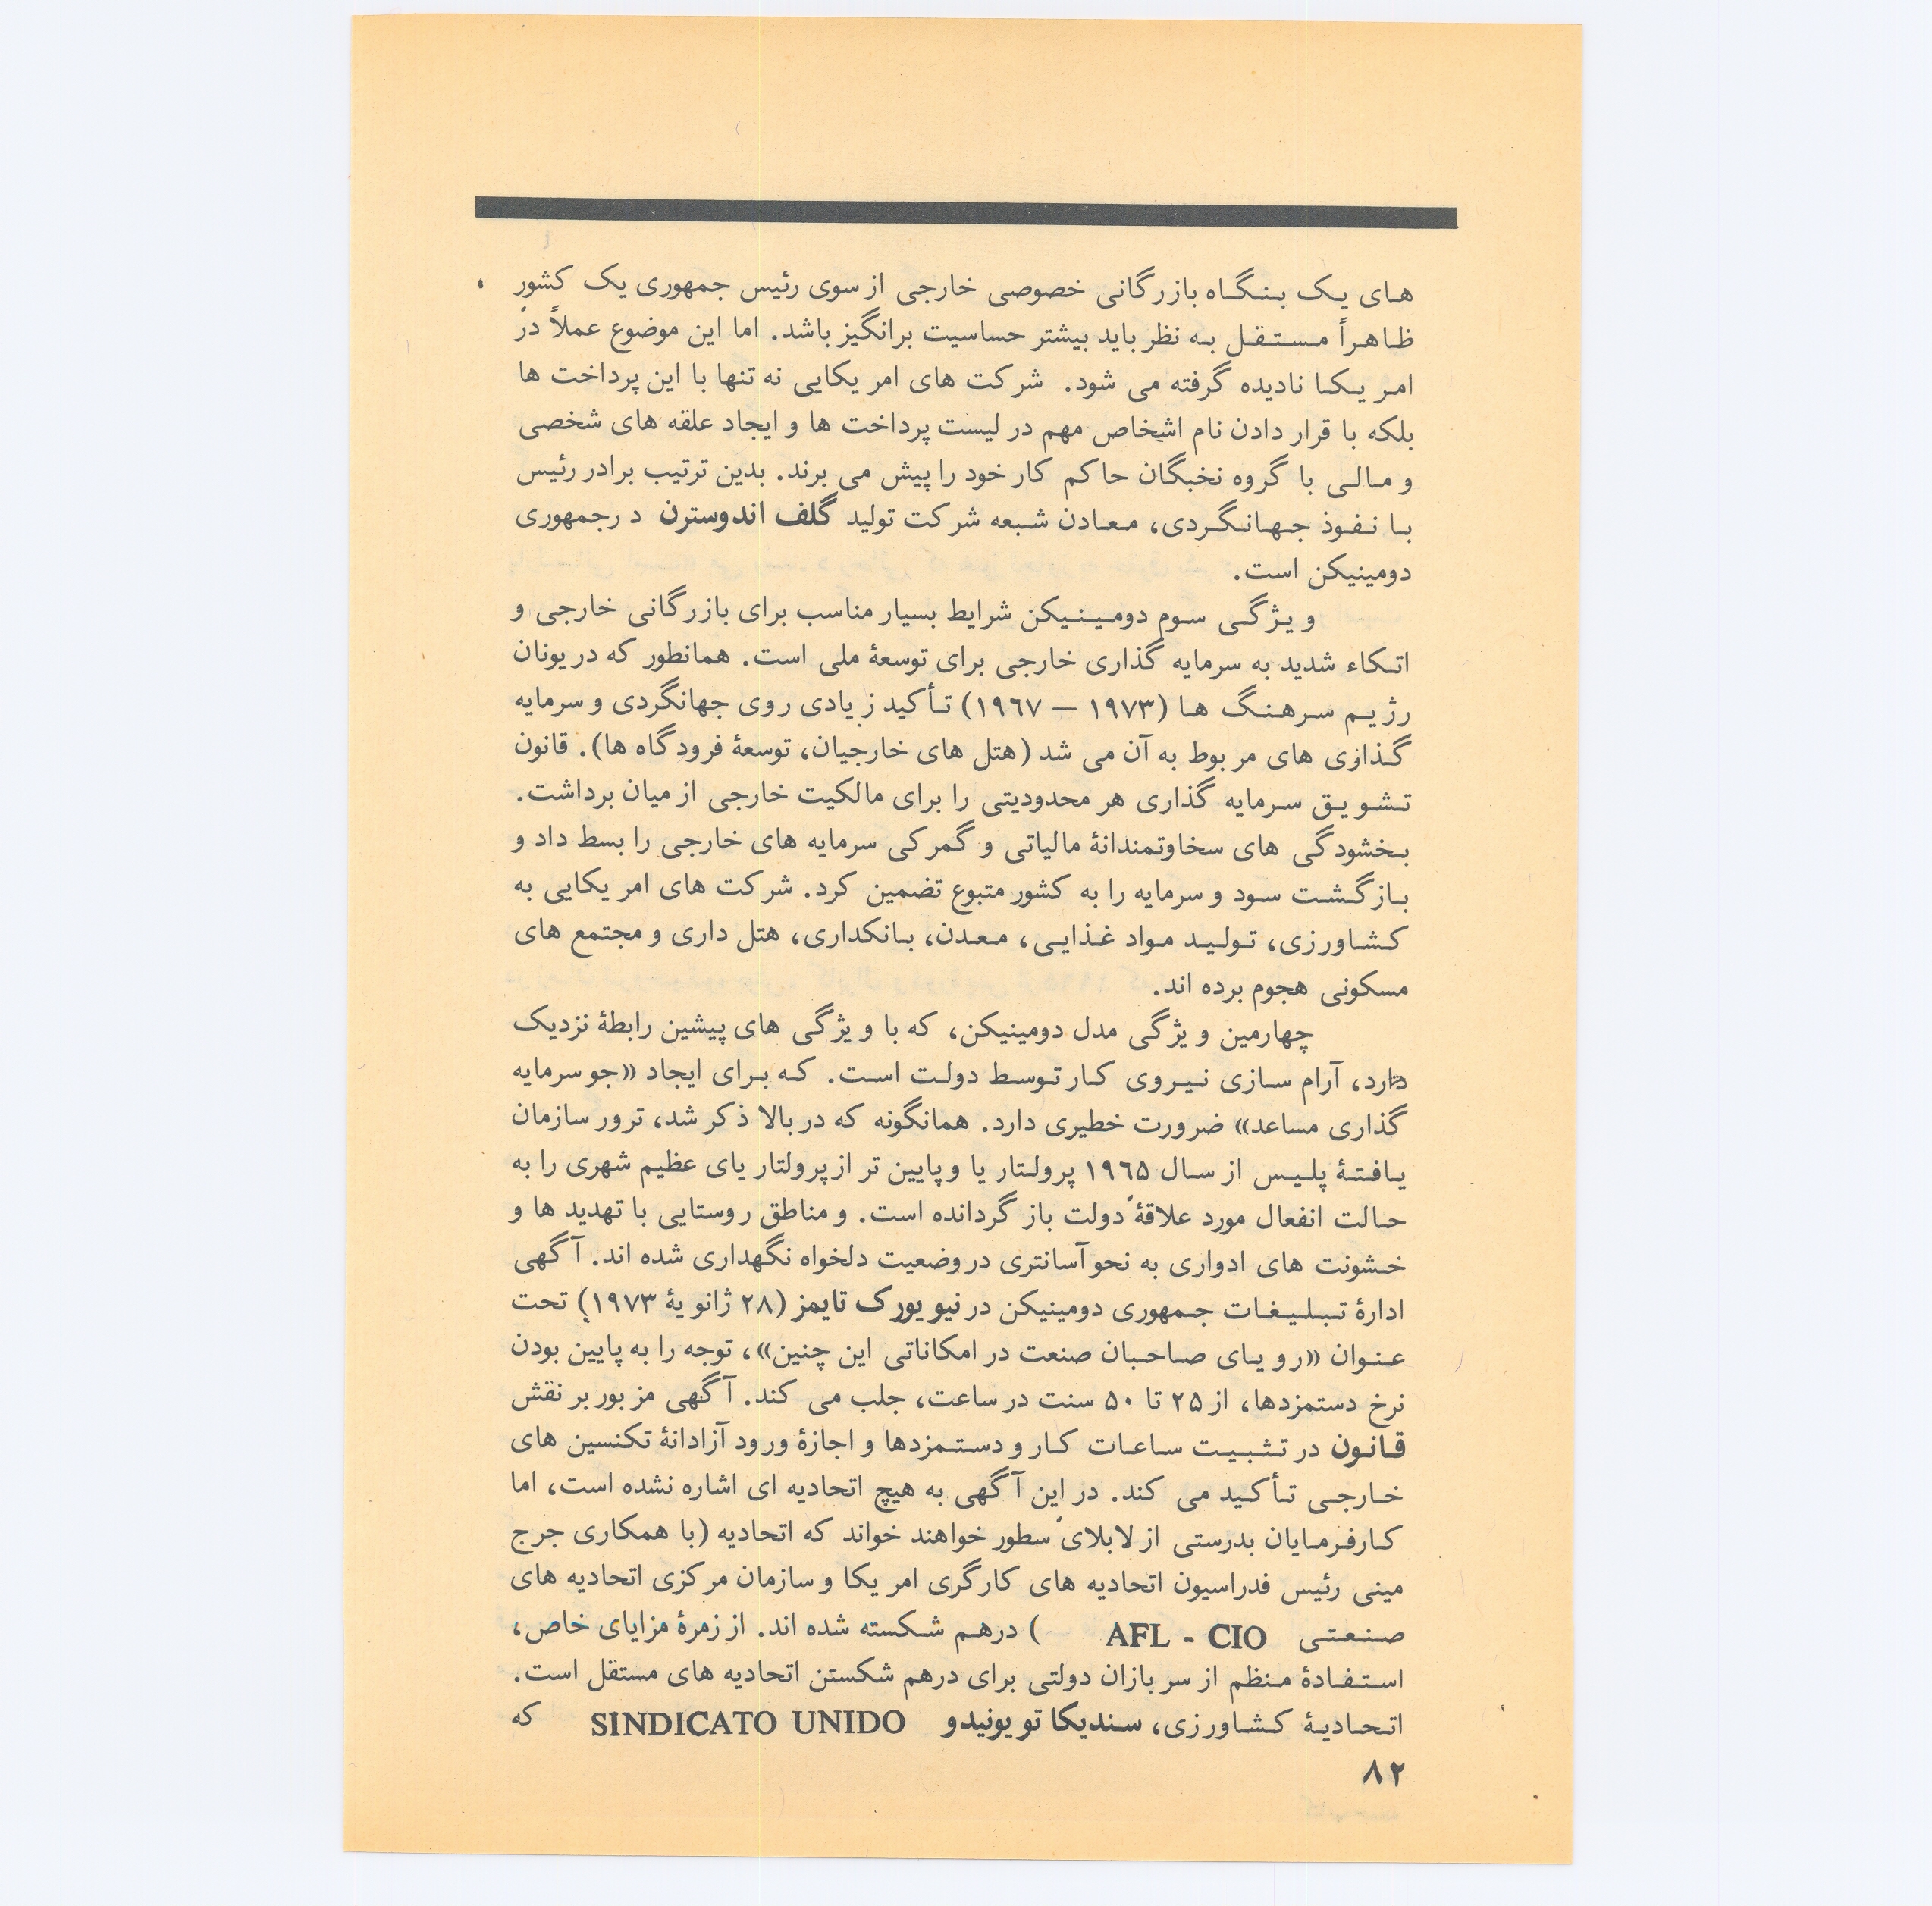 های یک بنگاه بازرگانی خصوصی خارجی از سوی رئیس جمهوری یک کشور
ظاهراً مستقل به نظر باید بیشتر حساسیت برانگیز باشد. اما این موضوع عملاً در
امریکا نادیده گرفته می شود. شرکت های امریکایی نه تنها با این پرداخت ها
بلکه با قرار دادن نام اشخاص مهم در لیست پرداخت ها و ایجاد علقه های شخصی
و مالی با گروه نخبگان حاکم کار خود را پیش می برند. بدین ترتیب برادر رئیس
با نفوذ جهانگردی، معادن شبعه شرکت تولید گلف اندوسترن د رجمهوری
دومینیکن است.
ویژگی سوم دومینیکن شرایط بسیار مناسب برای بازرگانی خارجی و
اتکاء شدید به سرمایه گذاری خارجی برای توسعۀ ملی است. همانطور که در یونان
رژیم سرهنگ ها (۱۹۷۳ – ۱۹۶۷) تأکید زیادی روی جهانگردی و سرمایه
گذاری های مربوط به آن می شد (هتل های خارجیان، توسعۀ فرودگاه ها). قانون
تشویق سرمایه گذاری هر محدودیتی را برای مالکیت خارجی از میان برداشت.
بخشودگی های سخاوتمندانۀ مالیاتی و گمرکی سرمایه های خارجی را بسط داد و
بازگشت سود و سرمایه را به کشور متبوع تضمین کرد. شرکت های امریکایی به
کشاورزی، تولید مواد غذایی، معدن، بانکداری، هتل داری و مجتمع های
مسکونی هجوم برده اند.
چهارمین ویژگی مدل دومینیکن، که با ویژگی های پیشین رابطۀ نزدیک
دارد، آرام سازی نیروی کار توسط دولت است. که برای ایجاد «جو سرمایه
گذاری مساعد» ضرورت خطیری دارد. همانگونه که در بالا ذکر شد، ترور سازمان
یافتۀ پلیس از سال ۱۹۶۵ پرولتاریا و پایین تر از پرولتاریای عظیم شهری را به
حالت انفعال مورد علاقۀ دولت باز گردانده است. و مناطق روستایی با تهدید ها و
خشونت های ادواری به نحو آسانتری در وضعیت دلخواه نگهداری شده اند. آگهی
ادارۀ تبلیغات جمهوری دومینیکن در نیویورک تایمز (۲۸ ژانویۀ ۱۹۷۳) تحت
عنوان «رویای صاحبان صنعت در امکاناتی این چنین»، توجه را به پایین بودن
نرخ دستمزدها، از ۲۵ تا ۵۰ سنت در ساعت، جلب می کند. آگهی مزبور بر نقش
قانون در تثبیت ساعات کار و دستمزدها و اجازۀ ورود آزادانۀ تکنسین های
خارجی تأکید می کند. در این آگهی به هیچ اتحادیه ای اشاره نشده است، اما
کارفرمایان بدرستی از لابلای سطور خواهند خواند که اتحادیه (با همکاری جرج
مینی رئیس فدراسیون اتحادیه های کارگری امریکا و سازمان مرکزی اتحادیه های
صنعتی AFL - CIO ) درهم شکسته شده اند. از زمرۀ مزایای خاص،
استفادۀ منظم از سربازان دولتی برای درهم شکستن اتحادیه های مستقل است.
اتحادیۀ کشاورزی، سندیکا تو یونیدو SINDICATO UNIDO که
۸۲